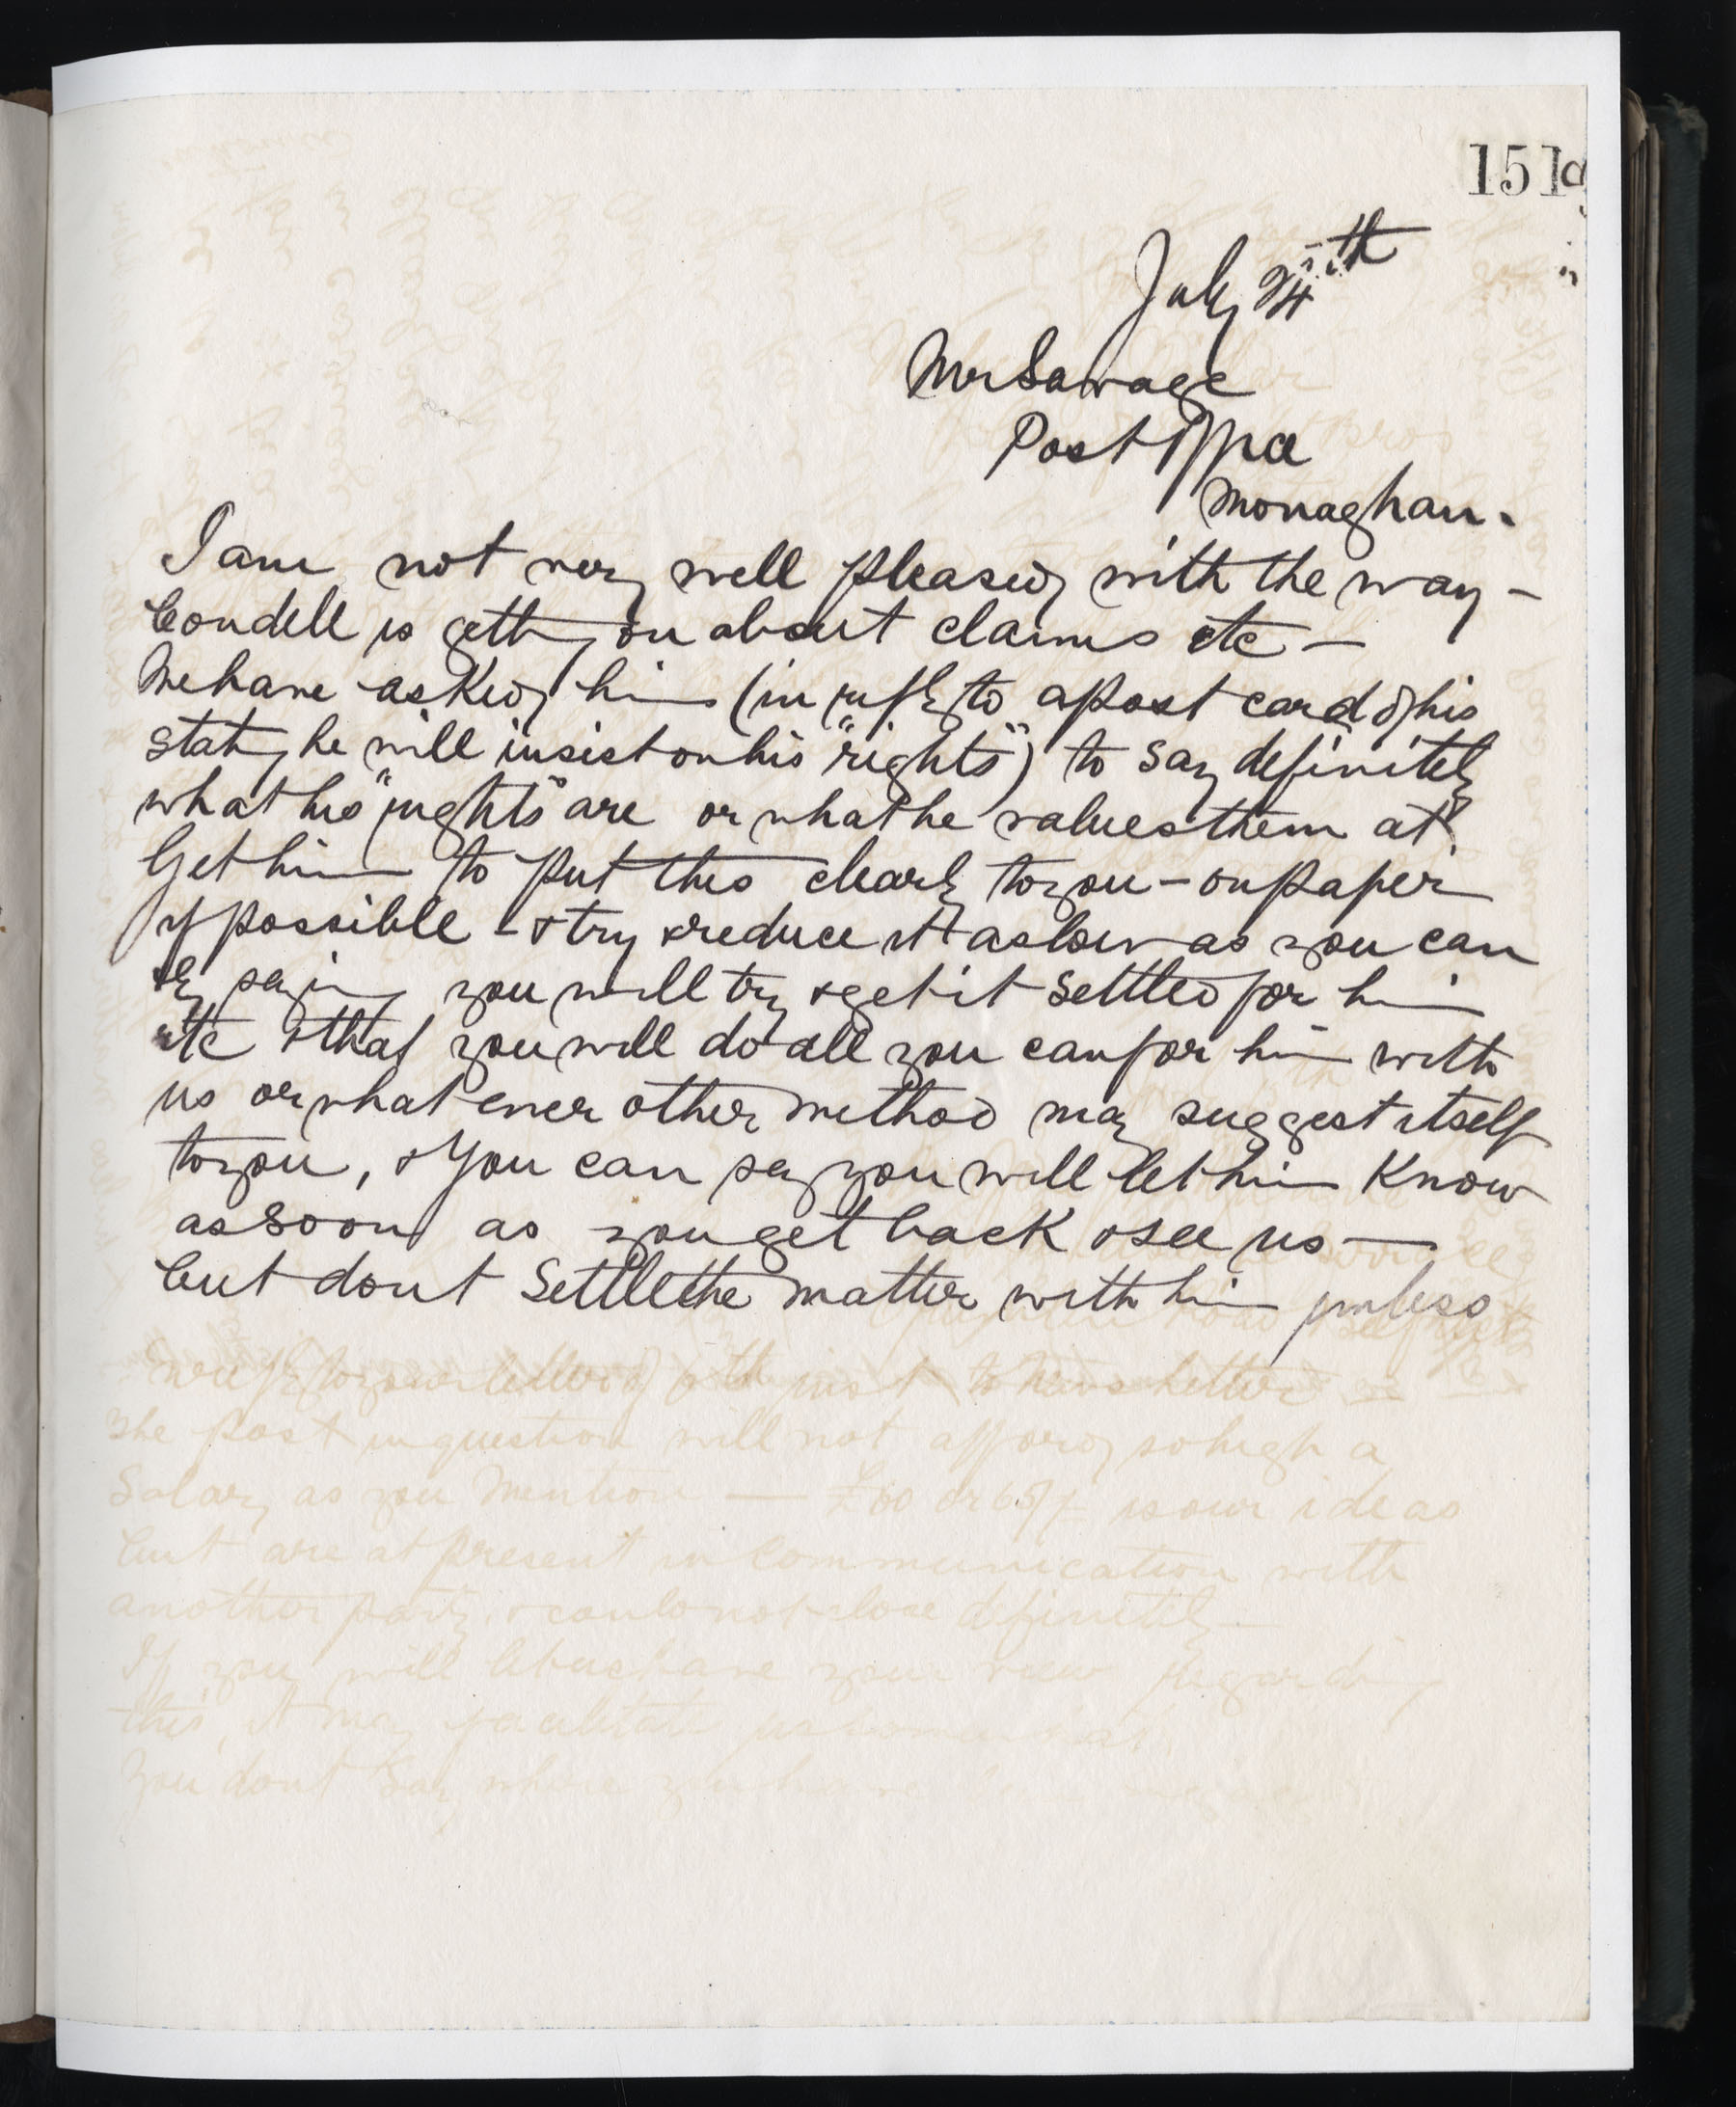 151a
July 24th
Mr Savage
Post Office
Monaghan.
I am not very well pleased with the way -
Condell is getting on about claims etc -
We have asked him (in reply to a post card of his
stating he will insist on his "rights") to say definitely
what his "rights" are or what he values them at.
Get him to put this clearly to you - on paper
if possible - & try & reduce it as low as you can
by saying you will try & get it settled for him
etc & that you will do all you can for him with
us or whatever other method may suggest itself
to you, & you can say you will let him know
as soon as you get back & see us -
but dont settle the matter with him unless
In reply to your letter of inst to News Letter
The post in question will not afford so high a
Salary as you mention — £60 or 65 is our ideas
but are at present in communication with
another party & could not close definitely -
If you will let us have your view regarding
this, it may facilitate
You dont say where you have